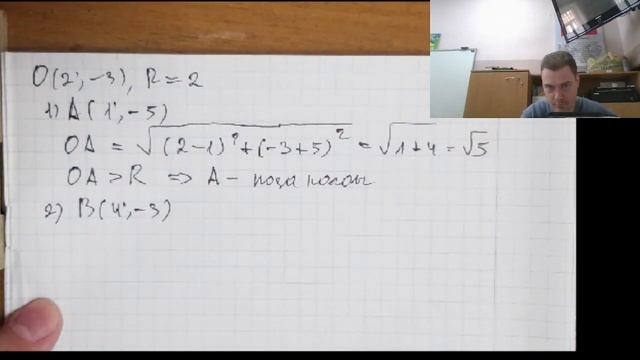 O(2; -3), R = 2
1) A(1; -5)
OA = √((2-1)² + (-3+5)²) = √(1+4) = √5
OA > R ⇒ A - поза колом
2) B(4; -3)